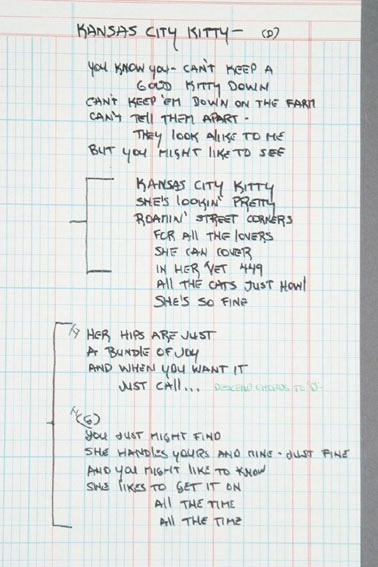 KANSAS CITY KITTY - (D)
YOU KNOW YOU - CAN'T KEEP A
GOOD KITTY DOWN
CAN'T KEEP 'EM DOWN ON THE FARM
CAN'T TELL THEM APART -
THEY LOOK ALIKE TO ME
BUT YOU MIGHT LIKE TO SEE
KANSAS CITY KITTY
SHE'S LOOKIN' PRETTY
ROAMIN' STREET CORNERS
FOR ALL THE LOVERS
SHE CAN COVER
IN HER VET 449
ALL THE CATS JUST HOWL
SHE'S SO FINE
HER HIPS ARE JUST
A BUNDLE OF JOY
AND WHEN YOU WANT IT
JUST CALL... DESCEND CHORDS TO
(G)
YOU JUST MIGHT FIND
SHE HANDLES YOURS AND MINE - JUST FINE
AND YOU MIGHT LIKE TO KNOW
SHE LIKES TO GET IT ON
ALL THE TIME
ALL THE TIME